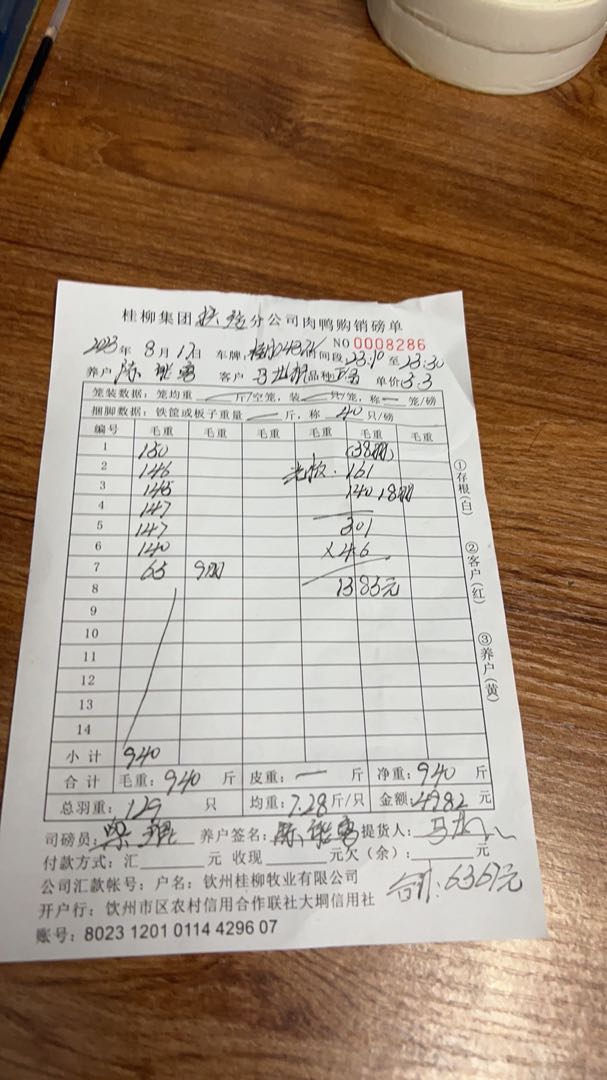 桂柳集团 分公司肉鸭购销磅单
NO 0008286
2023年 8月17日 车牌 时间段23:10至23:30
养户 陈 客户 马 品种 单价5.3
笼装数据：笼均重 一 斤/空笼，装 一 只/笼，称 一 笼/磅
捆脚数据：铁筐或板子重量 一 斤，称 40 只/磅
编号 毛重 毛重 毛重 毛重 毛重 毛重
1 150 (38羽)
2 146 161
3 145 140 18羽
4 147
5 147 301
6 140 ×4.6
7 65 9羽 1385元
8
9
10
11
12
13
14
小计 940
合计 毛重：940 斤 皮重：一 斤 净重：940 斤
总羽重：129 只 均重：7.28斤/只 金额：4982元
司磅员： 养户签名：陈 提货人：马
付款方式：汇 元 收现 元欠（余）： 元
公司汇款帐号：户名：钦州桂柳牧业有限公司
合计：6367元
开户行：钦州市区农村信用合作联社大垌信用社
账号：8023 1201 0114 4296 07
①存根(白)
②客户(红)
③养户(黄)